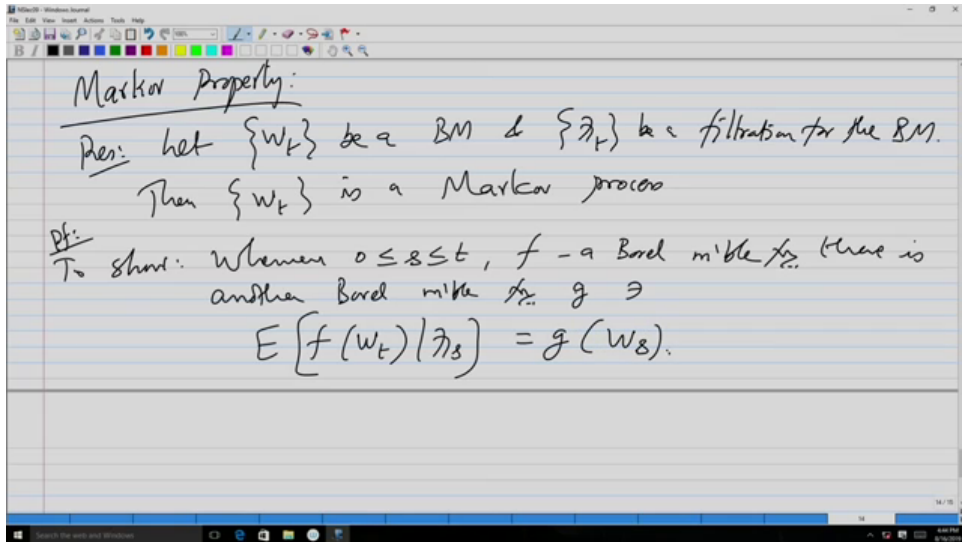 NSlec09 - Windows Journal
File Edit View Insert Actions Tools Help
Markov Property:
Res: Let {W_t} be a BM & {ℱ_t} be a filtration for the BM.
Then {W_t} is a Markov process
Pf:
To show: Whenever 0 ≤ s ≤ t, f - a Borel m'ble fn. there is
another Borel m'ble fn. g ∋
E[f(W_t)|ℱ_s] = g(W_s).
14 / 15
14
Search the web and Windows
4:44 PM
8/16/2019